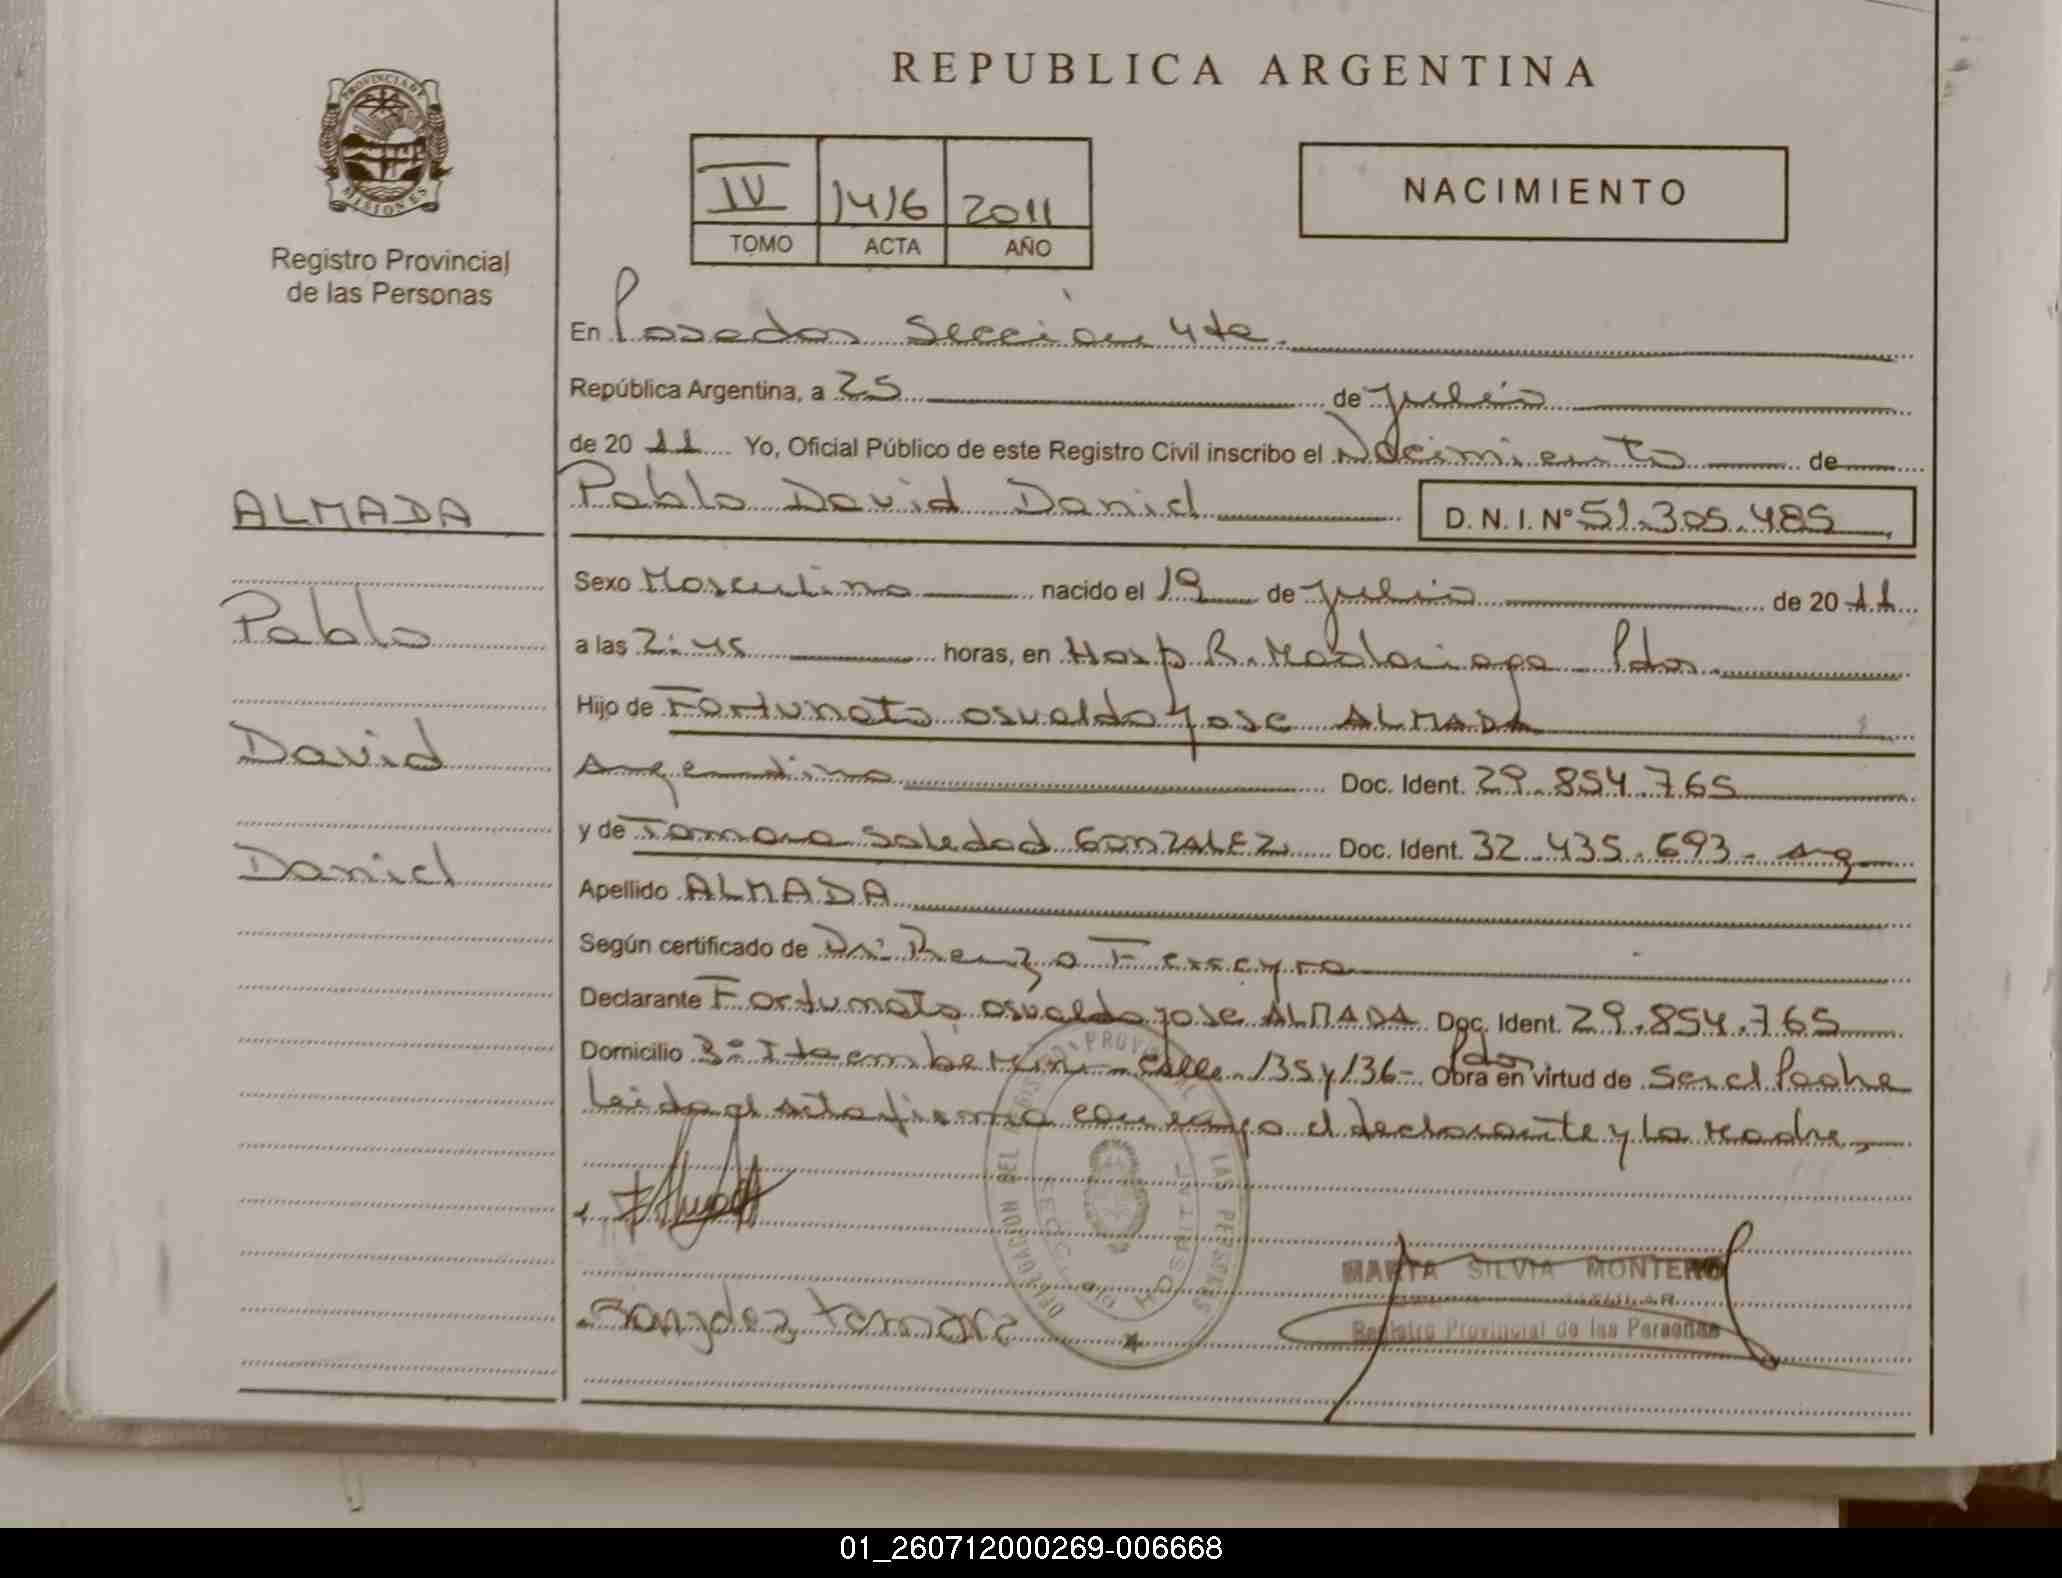 REPUBLICA ARGENTINA
PROVINCIA DE
MISIONES
Registro Provincial
de las Personas
IV 1416 2011
TOMO ACTA AÑO
NACIMIENTO
En Posadas Sección 4ta.
República Argentina, a 25 de Julio
de 20 11 Yo, Oficial Público de este Registro Civil inscribo el Nacimiento de
Pablo David Daniel D. N. I. N° 51.305.485
ALMADA
Pablo
David
Daniel
Sexo Masculino nacido el 19 de Julio de 20 11
a las 2:45 horas, en Hosp R. Madariaga Pdas.
Hijo de Fortunato Osvaldo Jose ALMADA
Argentino Doc. Ident. 29.854.765
y de Tamara Soledad GONZALEZ Doc. Ident. 32.435.693 - Arg
Apellido ALMADA
Según certificado de Dr: Renzo Ferreyra
Declarante Fortunato Osvaldo Jose ALMADA Doc. Ident. 29.854.765
Domicilio 3° Itaembe mini - Calle 135 y 136 - Pdas Obra en virtud de Ser el Padre
Leida el acta firma conmigo el declarante y la Madre,
DELEGACION DEL REGISTRO PROVINCIAL DE LAS PERSONAS
HOSPITAL
Gonzalez Tamara
MARTA SILVIA MONTERO
Registro Provincial de las Personas
01_260712000269-006668